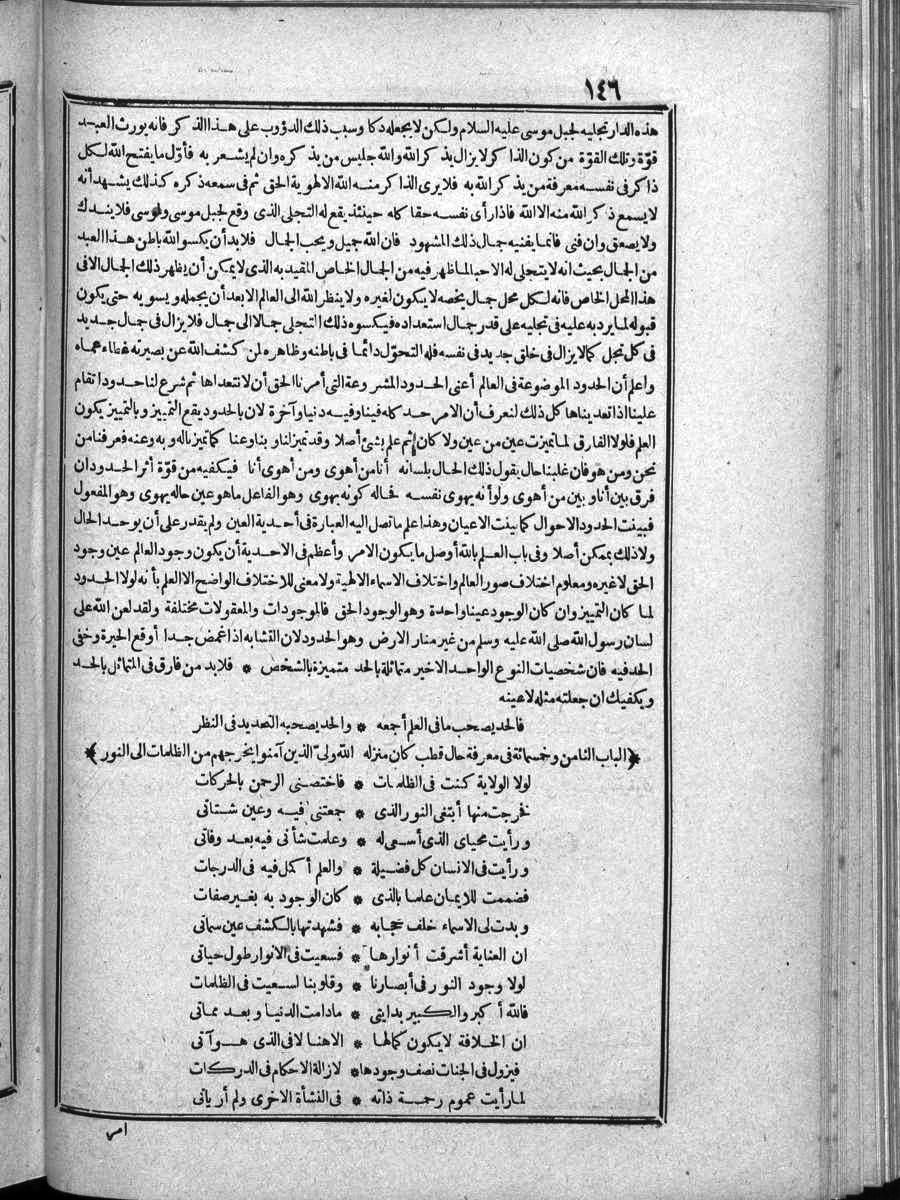 ١٤٦
هذه الدار تجليه لجبل موسى عليه السلام ولكن لا يجعله دكا وسبب ذلك الدؤوب على هذا الذكر فانه يورث العبد
قوّة وتلك القوّة من كون الذاكر لا يزال يذكر الله والله جليس من يذكره وان لم يشعر به فأوّل ما يفتح الله لكل
ذاكر فى نفسه معرفة من يذكر الله به فلا يرى الذاكر منه الله الا لهوية الحق ثم فى سمعه ذكره كذلك يشهد أنه
لا يسمع ذكر الله منه الا الله فاذا رأى نفسه حقا كله حينئذ يقع له التجلى الذى وقع لجبل موسى ولموسى فلا يندك
ولا يصعق وان فنى فانما يفنيه جمال ذلك المشهود فان الله جميل ويحب الجمال فلابد أن يكسو الله باطن هذا العبد
من الجمال بحيث انه لا يتجلى له الا حبا لما ظهر فيه من الجمال الخاص المقيد به الذى لا يمكن أن يظهر ذلك الجمال الا فى
هذا المحل الخاص فانه لكل محل جمال يخصه لا يكون لغيره ولا ينظر الله الى العالم الا بعد أن يجمله ويسويه حتى يكون
قبوله لما يرد به عليه فى تجليه على قدر جمال استعداده فيكسوه ذلك التجلى جمالا الى جمال فلا يزال فى جمال جديد
فى كل تجل كما لا يزال فى خلق جديد فى نفسه فله التحوّل دائما فى باطنه وظاهره لمن كشف الله عن بصيرته غطاء عماه
واعلم أن الحدود الموضوعة فى العالم أعنى الحدود المشروعة التى أمرنا الحق أن لا نتعداها ثم شرع لنا حدودا تقام
علينا اذا تعديناها كل ذلك لنعرف أن الامر حد كله فينا وفيه دنيا وآخرة لان بالحدود يقع التمييز وبالتمييز يكون
العلم فلولا الفارق لما تميزت عين من عين ولا كان ثم علم بشئ أصلا وقد تميز لنا وبنا وعنا كما تميزنا له وبه وعنه فعرفنا من
نحن ومن هو فان غلبنا حال يقول ذلك الحال بلسانه أنا من أهوى ومن أهوى أنا فيكفيه من قوّة أثر الحدود ان
فرق بين أنا وبين من أهوى ولو أنه يهوى نفسه فحاله كونه يهوى وهو الفاعل ما هو عين حاله يهوى وهو المفعول
فبينت الحدود الاحوال كما بينت الاعيان وهذا علم ما تصل اليه العبارة فى أحدية العين ولم يقدر على أن يوحد الحال
ولا ذلك بممكن أصلا وفى باب العلم بالله أوصل ما يكون الامر وأعظم فى الاحدية أن يكون وجود العالم عين وجود
الحق لا غيره ومعلوم اختلاف صور العالم واختلاف الاسماء الالهية ولا معنى للاختلاف الواضح الا العلم بأنه لولا الحدود
لما كان التمييز وان كان الوجود عينا واحدة وهو الوجود الحق فالموجودات والمعقولات مختلفة ولقد لعن الله على
لسان رسول الله صلى الله عليه وسلم من غير منار الارض وهو الحدود لان التشابه اذا غمض جدا أوقع الحيرة وخفى
الحد فيه فان شخصيات النوع الواحد الاخير متماثلة بالحد متميزة بالشخص * فلابد من فارق فى المتماثل بالحد
ويكفيك ان جعلته مثله لا عينه
فالحد يصحب ما فى العلم أجمعه * والحد يصحبه التحديد فى النظر
﴿الباب الثامن وخمسمائة فى معرفة حال قطب كان منزله الله ولىّ الذين آمنوا يخرجهم من الظلمات الى النور﴾
لولا الولاية كنت فى الظلمات * فاختصنى الرحمن بالحركات
فخرجت منها أبتغى النور الذى * جمعتنى فيه وعين شتاتى
ورأيت محياى الذى أسعى له * وعلمت شأنى فيه بعد وفاتى
ورأيت فى الانسان كل فضيلة * والعلم أكمل فيه فى الدرجات
فضممت للايمان علما بالذى * كان الوجود به بغير صفات
وبدت لى الاسماء خلف حجابه * فشهدتها بالكشف عين سماتى
ان العناية أشرقت أنوارها * فسعيت فى الانوار طول حياتى
لولا وجود النور فى أبصارنا * وقلوبنا لسعيت فى الظلمات
فالله أكبر والكبير بدايتى * مادامت الدنيا وبعد مماتى
ان الخلافة لا يكون كمالها * الا هنا لا فى الذى هو آتى
فيزول فى الجنات نصف وجودها * لازالة الاحكام فى الدركات
لما رأيت عموم رحمة ذاته * فى النشأة الاخرى ولم أر ياتى
امر